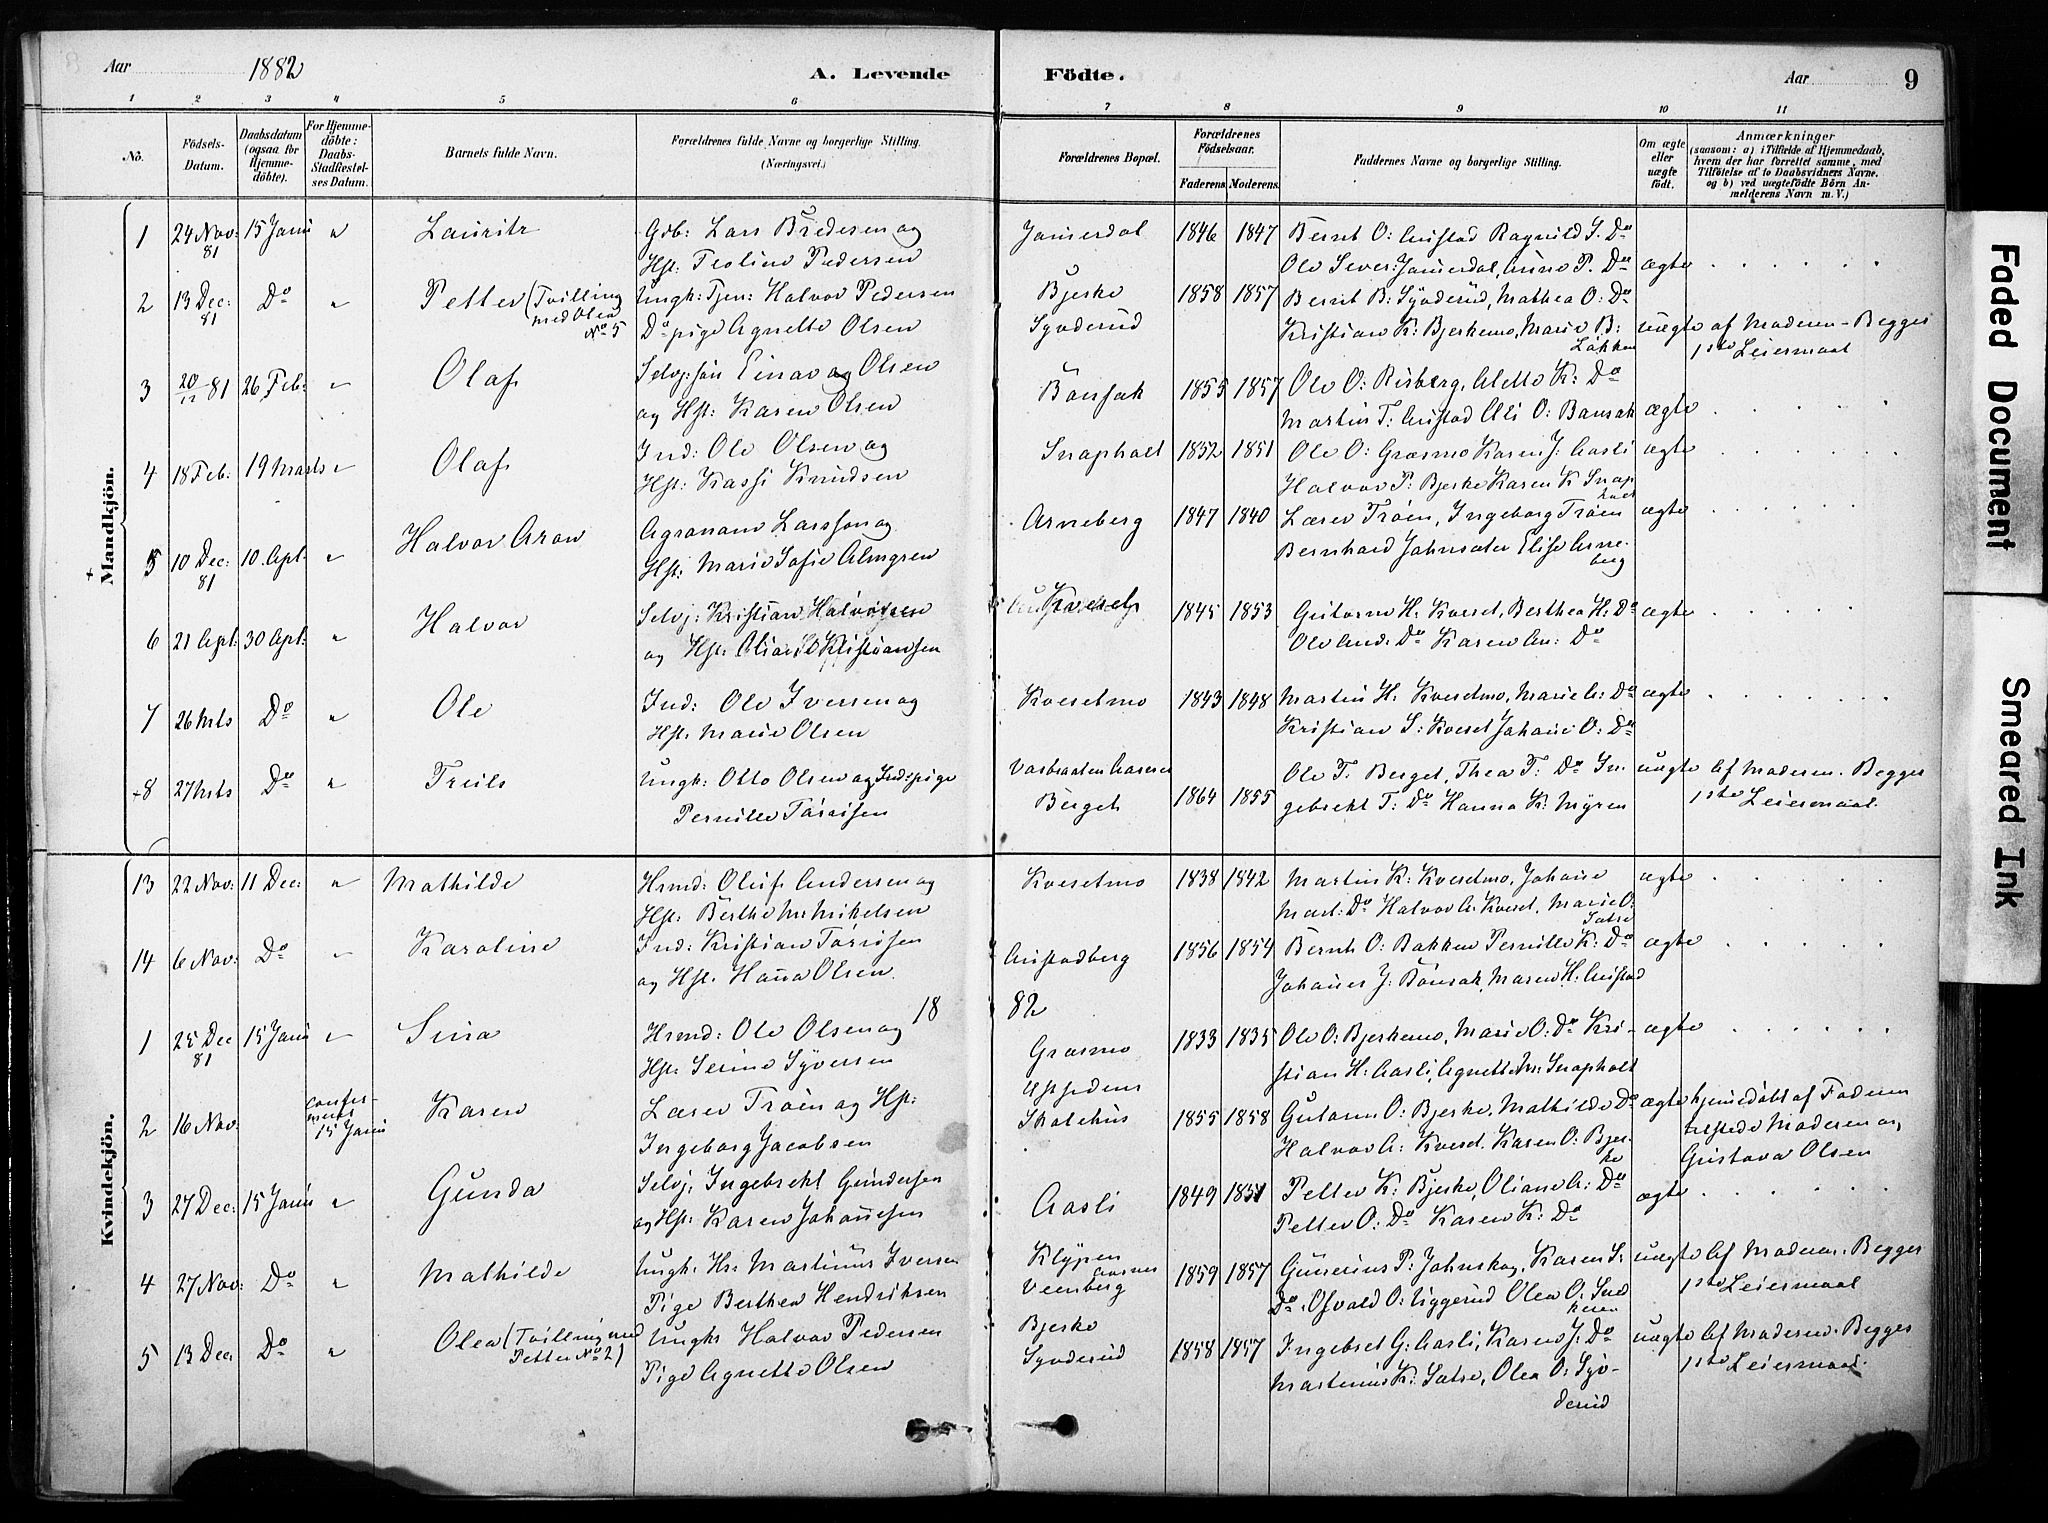 Aar 1882 A. Levende Födte. Aar 9
1 2 3 4 5 6 7 8 9 10 11
No.
Födsels-Datum.
Daabsdatum (ogsaa for Hjemme-döbte).
For Hjemme-döbte: Daabs-Stadfæstel-ses Datum.
Barnets fulde Navn.
Forældrenes fulde Navne og borgerlige Stilling. (Næringsvei.)
Forældrenes Bopæl.
Forældrenes Födselsaar.
Faderens. Moderens.
Faddernes Navne og borgerlige Stilling.
Om ægte eller uægte födt.
Anmærkninger
(saasom: a) i Tilfælde af Hjemmedaab,
hvem der har forrettet samme, med
Tilföielse af to Daabsvidners Navne,
og b) ved uægtefödte Börn An-
melderens Navn m. V.)
Mandkjön.
1 24 Nov: 81 15 Janu " Lauritz Gdb: Lars Bredesen og
Hst: Teoline Pedersen
Janerdal 1846 1847 Bernt O: Aristad Ragnild S. Do
Ole Sever: Janerdal, Anne P. Do ægte
2 13 Dec: 81 Do " Petter (Tvilling med Olea No 5 Ungk: Tjen: Halvor Pedersen
Do pige Agnette Olsen
Bjerke
Syvderud
1858 1857 Bernt B: Syvderud, Mathea O: Do
Kristian K: Bjerkemo, Marie B: Løkken
uægte af Moderen - Begges
1ste Leiermaal
3 20/12 81 26 Feb: " Olaf Selvj: søn Einar Olsen
og Hst: Karen Olsen
Bånsak 1855 1857 Ole O: Risberg, Alette K: Do
Martin T: Aristad Eli O: Bansak ægte
4 18 Feb: 19 Marts " Olaf Ind: Ole Olsen og
Hst: Kassi Knudsen
Snapholt 1852 1851 Ole O: Grasmo Karen J: Aasli ægte
Halvor P: Bjerke Karen K. Snapholt
5 10 Dec: 81 10. Apl: " Halvor Aron Agronom Larsson og
Hst: Marie Sofie Almgren
Arneberg 1847 1840 Lærer Trøen, Ingeborg Trøen ægte
Bernhard Johnsæter Elise Arne-
berg
6 21 Apl: 30 Apl: " Halvor Selvj: Kristian Halvorsen
og Hst: Kristiansen
Kveset 1845 1853 Gutorm H. Kveset, Berthea H: Do ægte
Ole And: Do Karen An: Do
7 26 Mts Do " Ole Ind: Ole Iversen og
Hst. Marie Olsen
Kvesetmo 1843 1848 Martin H. Kvesetmo, Marie A: Do ægte
Kristian S: Kveset Johane O: Do
8 27 Mts Do " Truls Ungk: Otto Olsen og Ind: pige
Pernille Tørrisen
Berget 1864 1855 Ole T. Berget, Thea T: Do In-
gebrekt T: Do Hanna K. Myren
uægte Af Moderen. Begges
1ste Leiermaal.
Kvindekjön.
13 22 Nov: 11 Dec: " Mathilde Hrmd: Oluf Andersen og
Hst: Berthe M. Mikelsen
Kvesetmo 1838 1842 Martin K: Kvesetmo, Johane
Mart: Do Halvor A: Kveset, Marie O: Satre ægte
14 6 Nov: Do " Karoline Ind: Kristian Tørrisen
og Hst. Hanna Olsen.
Aristadberg 1856 1854 Bernt O: Bakken Pernille K: Do ægte
Johannes J: Bånsak, Maren H. Aristad
18 82
1 25 Dec 81 15 Janu " Sina Hrmd: Ole Olsen og
Hst: Serine Syversen
Grasmo 1833 1835 Ole O: Bjerkemo, Marie O: Do Kri-
stian H: Aasli, Agnette M: Snapholt ægte
2 16 Nov: confer-
meret
15 Janu Karen Lærer Trøen og Hst:
Ingeborg Jacobsen
Skolehus 1855 1858 Gutorm O: Bjerke, Mathilde Do
Halvor A: Kveset. Karen O: Bjer-
ke
ægte hjemedøbt af Faderen
tilstede Moderen og
Gustava Olsen
3 27 Dec: 15 Janu " Gunda Selvj. Ingebrekt Gundersen
og Hst: Karen Johannesen
Aasli 1849 1851 Petter K: Bjerke, Oliane A: Do ægte
Petter O: Do Karen K: Do
4 27 Nov: Do " Mathilde Ungk. Hr: Martinus Iversen
Pige Berthea Hendriksen
Klypen
Aasnes
Veenberg
1859 1857 Gunerius P: Johnskog, Karen S:
Do. Osvald O: Uggerud Olea O:
uægte Af Moderen. Begges
1ste Leiermaal
5 13 Dec: Do " Olea (Tvilling med Petter No 2) Ungk: Halvor Pedersen
Pige Agnette Olsen
Bjerke
Syvderud
1858 1857 Ingebret G: Aasli, Karen J: Do
Martinius K: Satre, Olea O: Syv-
derud
uægte Af Moderen. Begges
1ste Leiermaal.
Faded Document
Smeared Ink